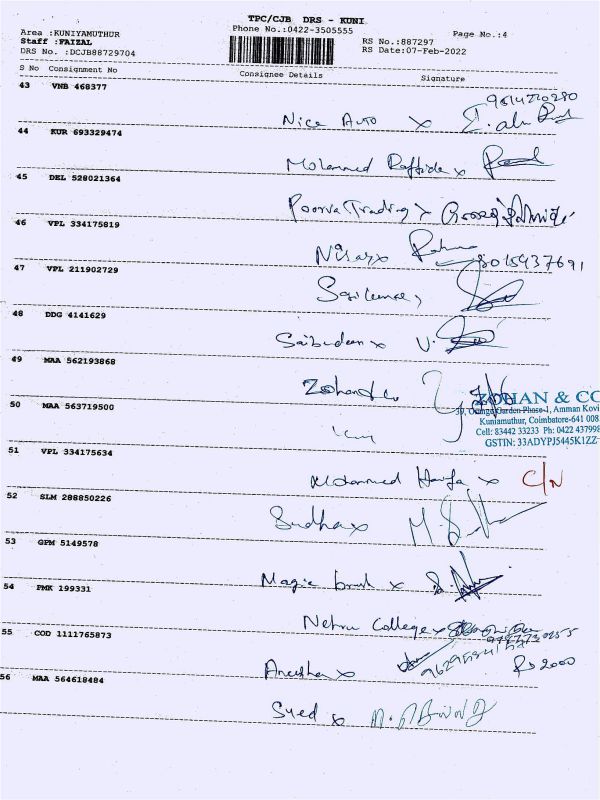 TPC/CJB DRS - KUNI
Area :KUNIYAMUTHUR
Phone No.:0422-3505555
Page No.:4
Staff :FAIZAL
RS No.:887297
DRS No. :DCJB88729704
RS Date:07-Feb-2022
S No Consignment No Consignee Details Signature
43 VNB 468377
Nice Auto x
44 KUR 693329474
Mohammed x
45 DEL 528021364
Poorva Trading x
46 VPL 334175819
Nisar x
8015437691
47 VPL 211902729
48 DDG 4141629
Saibudeen x
49 MAA 562193868
Zohan & Co
ZOHAN & CO
39, Orange Garden Phase-1, Amman Kovi
Kuniamuthur, Coimbatore-641 008
Cell: 83442 33233 Ph: 0422 437998
GSTIN: 33ADYPJ5445K1ZZ
50 MAA 563719500
51 VPL 334175634
Mohammed x C/N
52 SLM 288850226
Sudha x
53 GPM 5149578
Magic x
54 PMK 199331
Nehru College x
55 COD 1111765873
Anusha x Rs 2000
56 MAA 564618484
Syed x